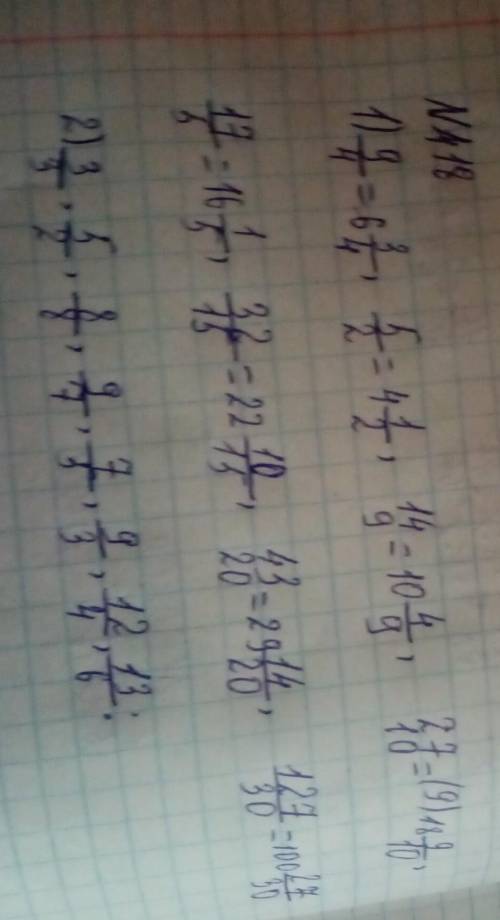 N418
1) 9/4 = 6 3/4, 5/2 = 4 1/2, 14/9 = 10 4/9, 27/10 = (9) 18 9/10,
17/5 = 16 1/5, 32/15 = 22 10/15, 43/20 = 29 14/20, 127/30 = 100 27/30
2) 3/3, 5/2, 8/8, 9/7, 7/3, 9/3, 12/4, 13/6;